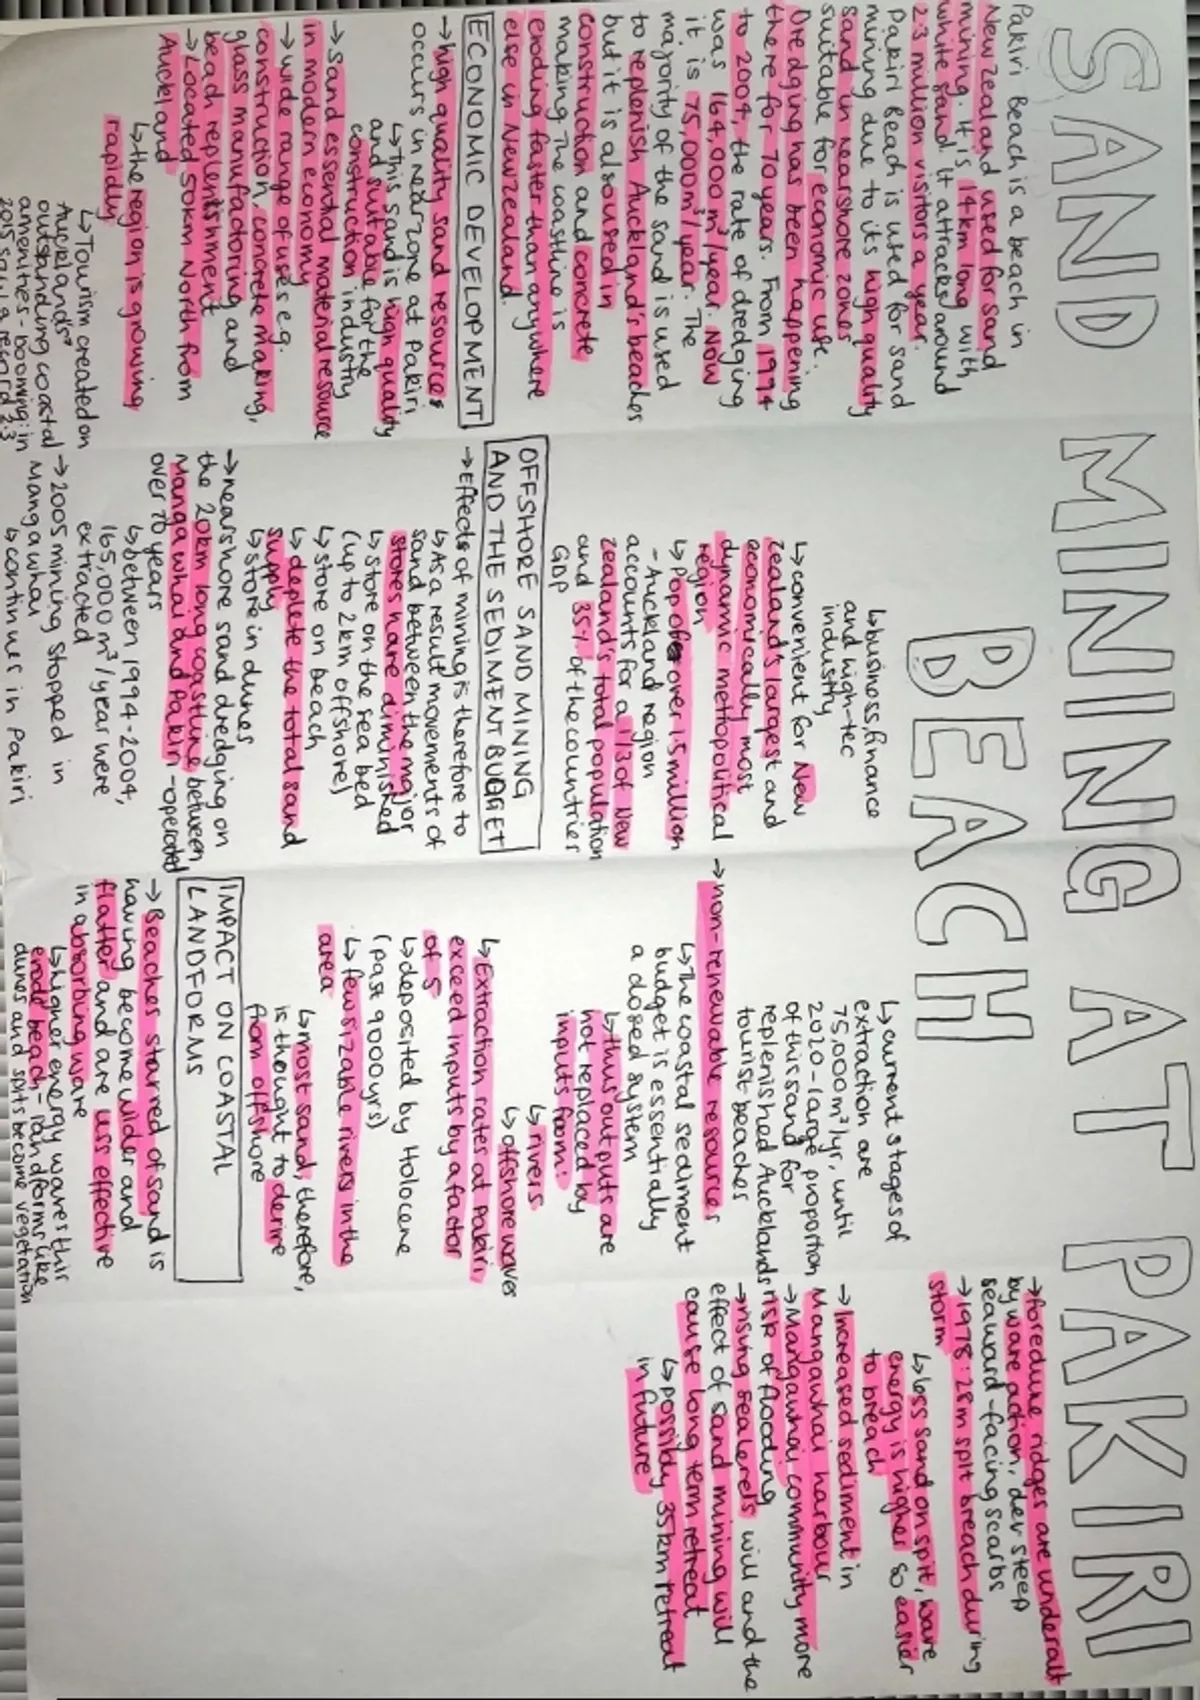 SAND MINING AT PAKIRI
BEACH
Pakiri Beach is a beach in
New Zealand used for sand
mining. It is 14km long with
white sand it attracts around
2.3 million visitors a year.
Pakiri Beach is used for sand
mining due to it's high quality
sand in nearshore zones
suitable for economic use.
Dredging has been happening
there for 70 years. From 1994
to 2004, the rate of dredging
was 164,000m³/year. Now
it is 75,000m³/year. The
majority of the sand is used
to replenish Auckland's beaches
but it is also used in
construction and concrete
making. The coastline is
eroding faster than anywhere
else in New Zealand.
ECONOMIC DEVELOPMENT
→ high quality sand resources
occurs in nearzone at Pakiri
↳ This sand is high quality
and suitable for the
construction industry
→ sand essential material resource
in modern economy
→ wide range of uses e.g.
construction, concrete making,
glass manufactoring and
beach replenishment
→ Located 50km North from
Auckland
↳ the region is growing
rapidly
↳ Tourism created on
Aucklands'
outstanding coastal
amenities - booming in
2015 saw a record 2.3
↳ business, finance
and high-tec
industry
↳ convenient for New
Zealand's largest and
economically most
dynamic metropolitical
region
↳ pop of over 1.5 million
- Auckland region
accounts for a 1/3 of New
Zealand's total population
and 35% of the countries
GDP
OFFSHORE SAND MINING
AND THE SEDIMENT BUDGET
→ Effects of mining is therefore to
↳ As a result movements of
sand between the major
stores have diminished
↳ store on the sea bed
(up to 2km offshore)
↳ store on beach
↳ deplete the total sand
supply
↳ store in dunes
→ nearshore sand dredging on
the 20km long coastline between
Mangawhai and Pakiri - operated
over 70 years
↳ between 1994-2004,
165,000 m³/year were
extracted
→ 2005 mining stopped in
Mangawhai
↳ continues in Pakiri
↳ current stages of
extraction are
75,000m³/yr, until
2020 - large proportion
of this sand for
replenished Aucklands
tourist beaches
→ non-renewable resources
↳ The coastal sediment
budget is essentially
a closed system
↳ thus outputs are
not replaced by
inputs from:
↳ rivers
↳ offshore waves
↳ Extraction rates at Pakiri,
exceed inputs by a factor
of 5
↳ deposited by Holocene
(past 9000yrs)
↳ few sizable rivers in the
area
↳ most sand, therefore,
is thought to derive
from offshore
IMPACT ON COASTAL
LANDFORMS
→ Beaches starved of sand is
having become wider and
flatter and are less effective
in absorbing wave
↳ higher energy waves this
erode beach - landforms like
dunes and spits become vegetation
→ foredune ridges are undercut
by wave action, dev steep
seaward-facing scarbs
→ 1978: 28m spit breach during
storm
↳ less sand on spit, wave
energy is higher so easier
to breach
→ Increased sediment in
Mangawhai harbour
→ Mangawhai community more
risk of flooding
→ rising sea levels will and the
effect of sand mining will
cause long term retreat
↳ possibly 35km retreat
in future